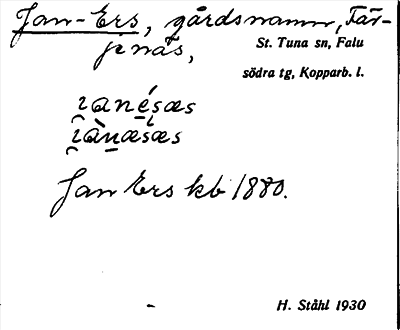 Jan-Ers, gårdsnamn, Tär-
jenäs,
St. Tuna sn, Falu
södra tg, Kopparb. l.
Jan Ers kb 1880.
H. Ståhl 1930